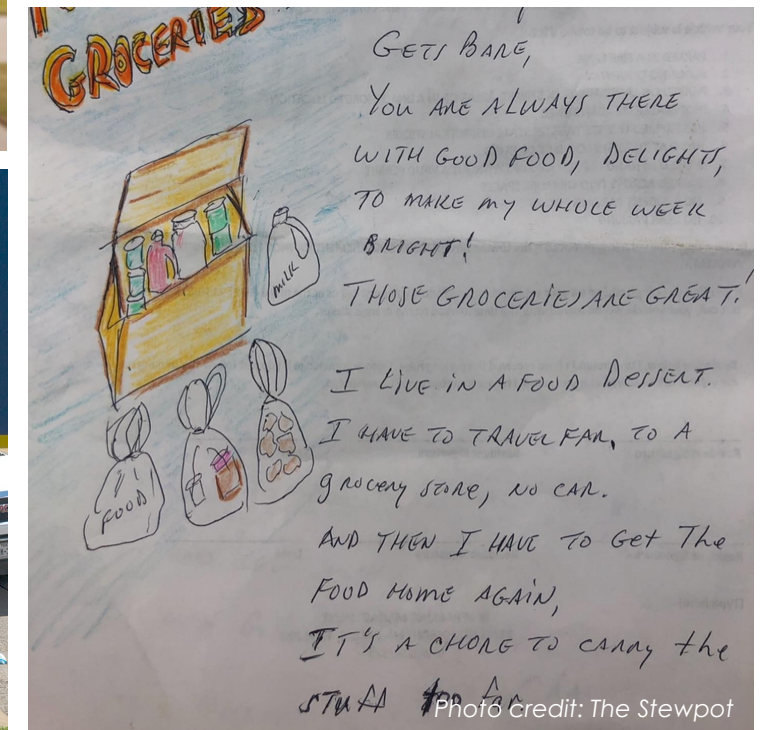 GROCERIES
GETS BARE,
YOU ARE ALWAYS THERE
WITH GOOD FOOD, DELIGHTS,
TO MAKE MY WHOLE WEEK
BRIGHT!
THOSE GROCERIES ARE GREAT!
MILK
I LIVE IN A FOOD DESSERT.
I HAVE TO TRAVEL FAR, TO A
grocery store, NO CAR.
FOOD
AND THEN I HAVE TO Get The
FOOD HOME AGAIN,
IT'S A CHORE TO CARRY the
STUff too far.
Photo credit: The Stewpot